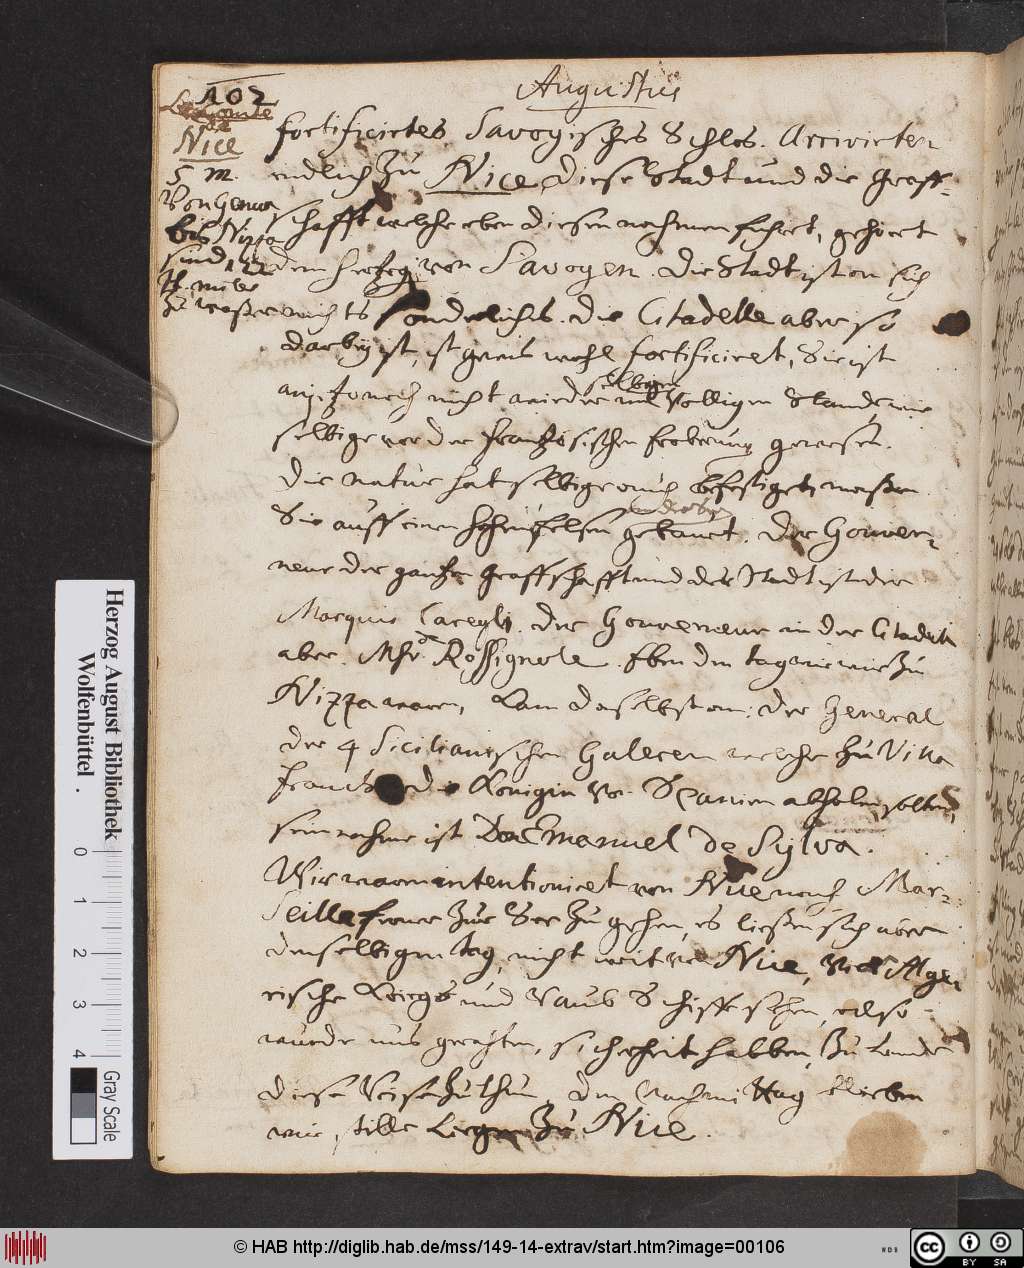 Augustus
102
Nice
5 m.
Von Genua
bis Nizza
sind 122
zu waßer
fortificirtes Savoyisches Schlos. Arrivirten
endlich zu Nice, diese Stadt und die Graff-
schafft welche eben diesen nahmen fuhret, gehöret
dem Hertzog von Savoyen. Die Stadt ist an sich
nichts sonderliches. die Citadelle aber so
darbey ist, ist gewis wohl fortificiret, Sie ist
anjetzo noch nicht wieder im völligen Stande wie
selbige vor der Frantzösischen Eroberung gewesen.
Die natur hat selbige auch befestiget, maßen
Sie auff einen hohen felsen gebauet. Der Gouver-
neur der gantzen Graffschafft und der Stadt ist der
Marquis Caregli. der Gouverneur in der Citadelle
aber Msr. Rossignole. Eben den tag wie wir zu
Nizza waren, kam daselbst an: der General
der 4 Sicilianischen Galeren welche zu Villa
Franca die Königin von Spanien abholen solten,
sein nahme ist Don Emanuel de Sylva.
Wir waren intentioniret von Nice nach Mar-
seille ferner zur See zu gehen, es ließen sich aber
denselbigen tag, nicht weit von Nice, viel Alge-
rische Kriegs und Raub Schiffe sehen, also
wurde uns gerahten, sicherheit halben, zu Lande
diese Reise zu thun. Den Nachmittag blieben
wir stille liegen zu Nice.
Herzog August Bibliothek
Wolfenbüttel .
0 1 2 3 4
Gray Scale
© HAB http://diglib.hab.de/mss/149-14-extrav/start.htm?image=00106
cc BY SA